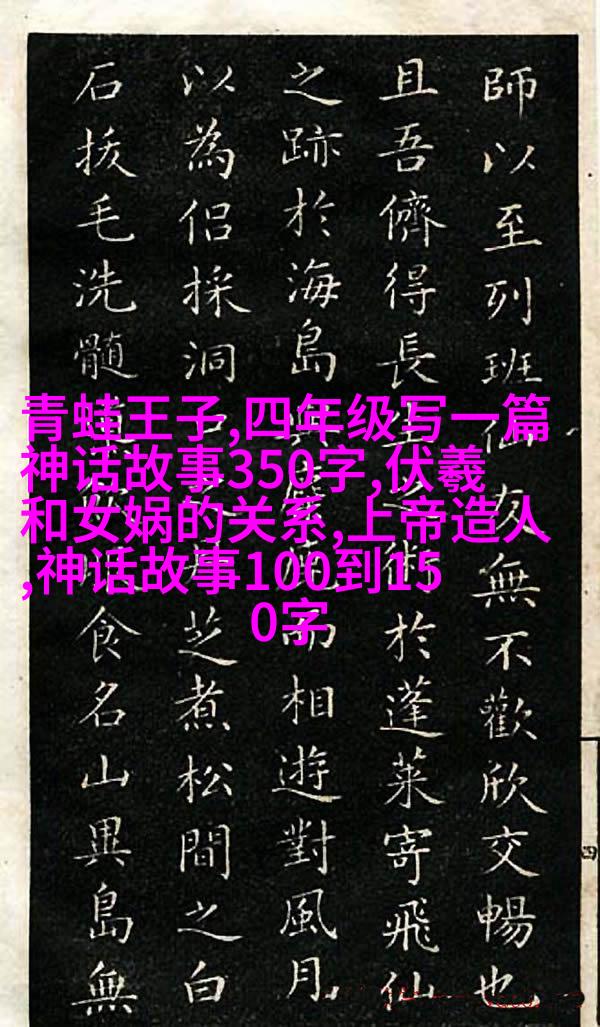 師以至列班仙友無不歡欣交暢也
且吾儕得長生之術於蓬萊寄飛仙
之跡於海島而相遊對風月
以為侶採洞芝煮松間之白
石拔毛洗髓食名山異島無
青蛙王子,四年级写一篇
神话故事350字,伏羲
和女娲的关系,上帝造人
,神话故事100到15
0字
四